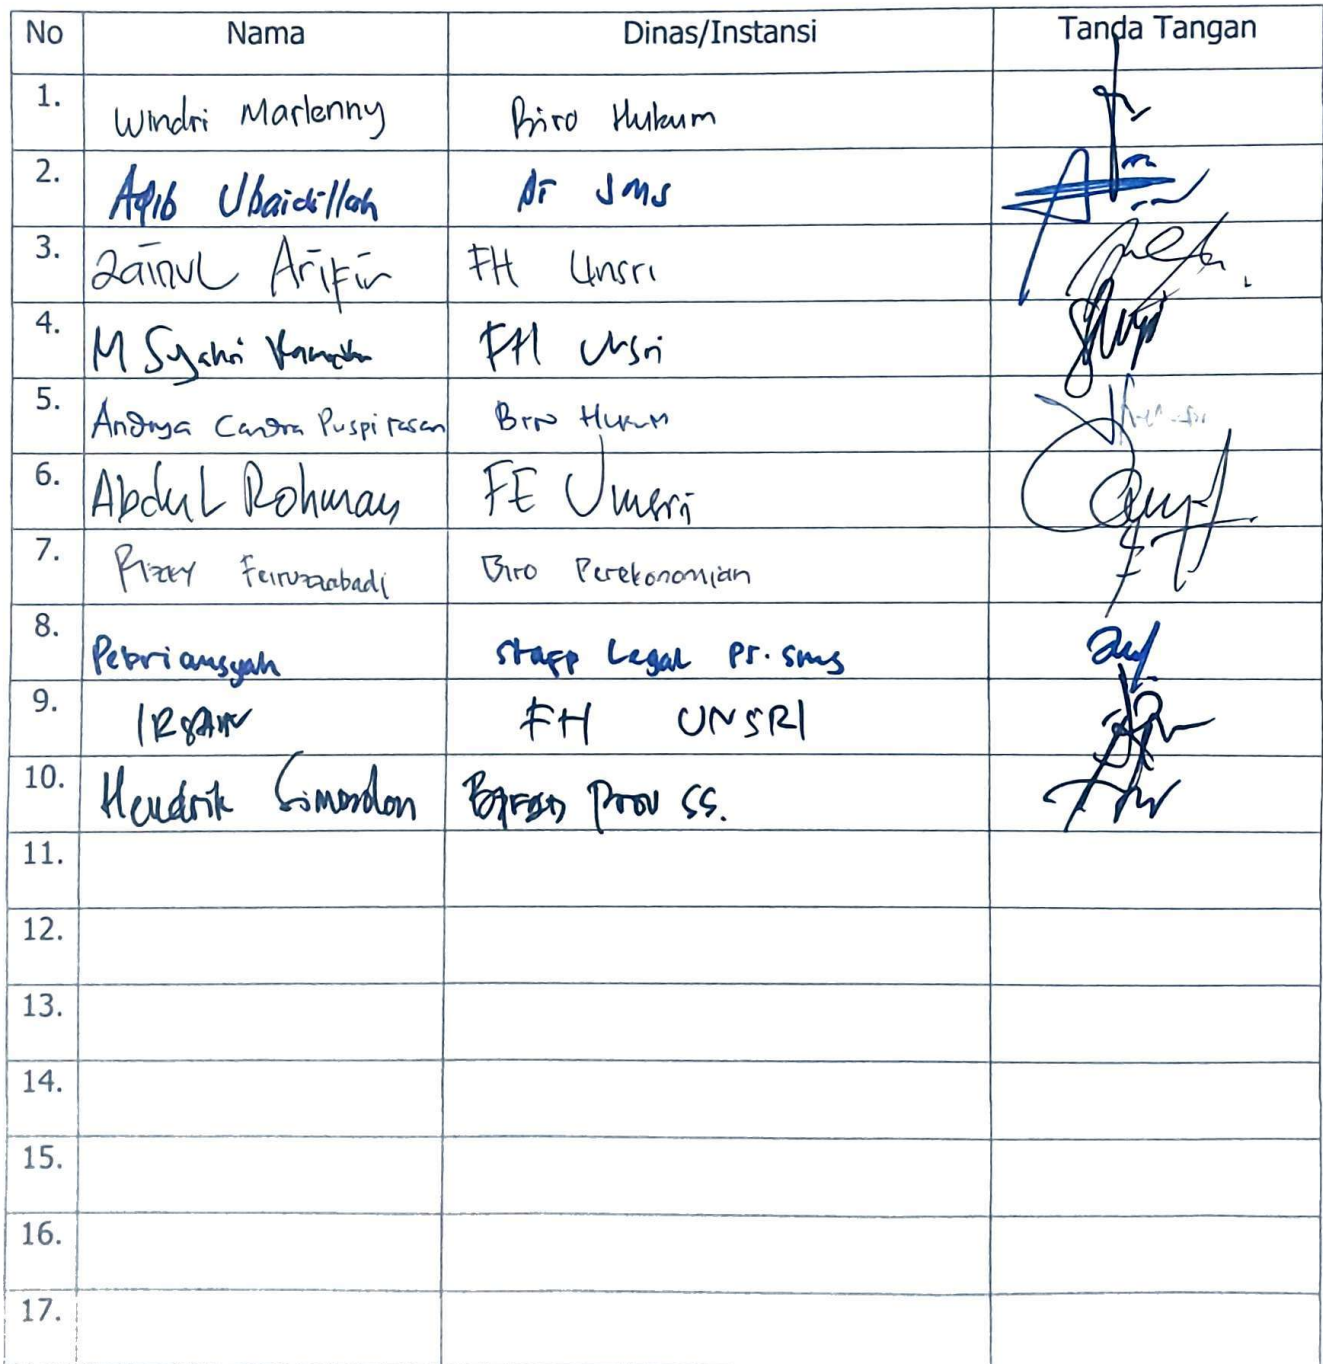 No Nama Dinas/Instansi Tanda Tangan
1. Windri Marlenny Biro Hukum
2. Aqib Ubaidillah PT SMS
3. Zainul Arifin FH Unsri
4. M Syahri FH Unsri
5. Andnya Candra Puspitasari Biro Hukum
6. Abdul Rohman FE Unsri
7. Rizky Feiruzzabadi Biro Perekonomian
8. Pebriansyah Staff Legal PT. SMS
9. IRSAN FH UNSRI
10. Hendrik Simondon Prov SS.
11.
12.
13.
14.
15.
16.
17.